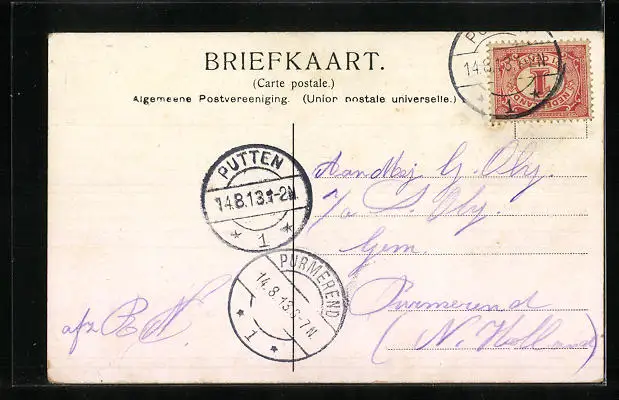 BRIEFKAART.
(Carte postale.)
Algemeene Postvereeniging. (Union postale universelle.)
14.8
1
NEDERLAND
1
PUTTEN
14.8.13.1-2N.
1
PURMEREND
14.8.13.6-7N.
1
G.
Gem.
Purmerend
(N. Holland)
afz